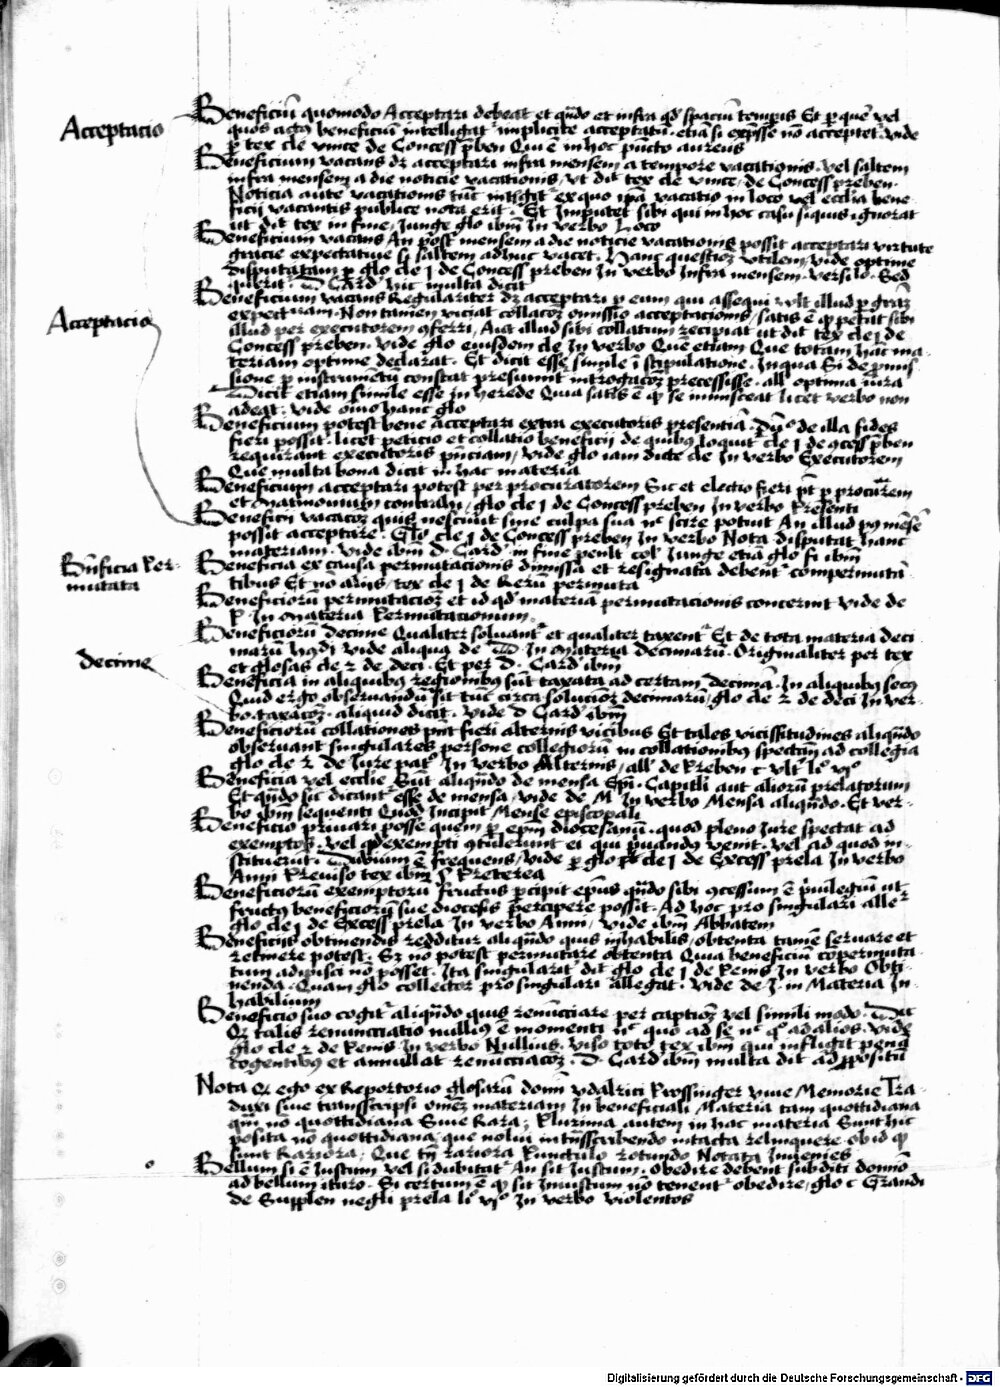 Acceptacio
Beneficiū quomodo Acceptari debeat et qn̄do et infra qd̄ spaciū tempus Et p quē vel
quos actꝯ beneficiū intelligatʳ implicite acceptatū. etiā si exp̄sse nō acceptet. vide
p tex cle vnice de Concess p̄ben Qui ē in hoc pūcto aureus
Beneficium vacans dʒ acceptari infra mensem a tempore vacationis. vel saltem
infra mensem a die noticie vacationis, vt dit tex cle vnice, de Concess preben.
Noticia autē vacationis tūc intʳ ex quo ip̄a vacatio in loco vel eccl̄ia bene
ficij vacantis publice nota erit. Et Imputet sibi qui in hoc casu siquis ignorat
ut dit tex in fine, Iunge glo ibm̄ in verbo Loco
Beneficium vacans An post mensem a die noticie vacationis possit acceptari virtute
gracie expectatiue si saltem adhuc vacet. Hanc questioꝫ vtilem, vide optime
disputatam p glo cle j de Concess preben In verbo Infra mensem. versilo. Sed
querit. D Card hic multa dicit
Acceptacio
Beneficium vacans Regulariter dʒ acceptari p eum qui assequi vult illud p graꝫ
expectuam. Non tamen viciat collacoꝫ omissio acceptacionis, satis ē qꝫ petiit sibi
illud per executorem ꝯferri, Aut illud sibi collatum recipiat ut dit tex cle j de
Concess preben. vide glo eiusdem cle In verbo Quē etiam Que totam hac ma-
teriam optime declarat. Et dicit esse simile ī stipulatione. In qua Si de pmis
sione p instrumētū constat presumit interrogacoꝫ precessisse. all optima iura
Dicit etiam simile esse in herede Quia satis ē qꝫ se inmisceat licet verbo non
adeat. vide oīno hanc glo
Beneficium potest bene acceptari extra executoris presentiā. Dū de illa fides
fieri possit. licet peticio et collatio beneficij de quibus loquitʳ cle j de ꝯcess p̄ben
requirant executoris pn̄ciam, vide glo iam dicte cle In verbo Executorem
Que multa bona dicit in hac materia
Beneficium acceptari potest per procuratorem Sic et electio fieri pt̄ p procur̄em
et Matrimonium contrahi, glo cle j de Concess preben In verbo Presenti
Beneficij vacacoꝫ quis nesciuit sine culpa sua nec scire potuit An illud pꝯ mēsē
possit acceptare. Glo cle j de Concess preben In verbo Nota disputat hanc
materiam. vide ibm̄ D. Card in fine penl̄t col Iunge etiā glo fi ibm̄
Bn̄ficia Per-
mutata
Beneficia ex causa permutacionis dimissa et resignata debentʳ compermutā
tibus Et nō alijs, tex cle j de Rerū permuta
Beneficiorū permutacioꝫ et id qd̄ materiā permutacionis concernit vide de
P. In materia Permutacionum.
decime
Beneficiorū decime Qualiter soluantʳ et qualiter taxentʳ Et de tota materia deci
marū vide aliqua de D In materia decimarū. Originaliter per tex
et glosas cle 2 de deci. Et per D. Card ibm̄
Beneficia in aliquibꝯ regionibꝯ sūt taxata ad certam decimā. In aliquibꝯ secꝯ
Quid ergo obseruandū sit tūc circa solucioꝫ decimarū, glo cle 2 de deci In ver-
bo taxacoꝫ. aliquid dicit. vide D Card ibm̄
Beneficiorū collationes pn̄t fieri alternis vicibus Et tales vicissitudines aliqn̄do
obseruant singulares persone collegiorū in collationibꝯ spectan̄ ad collegia
glo cle 2 de Iure patꝰ In verbo Alternis, all de Preben c vltꝰ liº vjº
Beneficia vel eccl̄ie Sūt aliqn̄do de mensa Epī. Capituli aut aliorū prelatorum
Et qn̄do sic dicantʳ esse de mensa, vide de M In verbo Mensa aliqn̄do. Et ver-
bo ibm̄ sequenti Quod Incipit Mense episcopali
Beneficio priuari posse quem p epm̄ diocesanū. quod pleno Iure spectat ad
exemptos. vel qd̄ exempti ꝯtulerunt ei qui priuandus venit. vel ad quod in-
stituerūt. Dubium ē frequens, vide p glo cle j de Excess prela In verbo
Anni Preuiso tex ibm̄ § Preterea
Beneficiorū exemptorū fructus pcipit epūs qn̄do sibi ꝯcessum ē priuilegiū ut
fructꝯ beneficiorū sue diocesis percipere possit. Ad hoc pro singulari alleʳ
glo cle j de Excess prela In verbo Anni, vide ibm̄ Abbatem
Beneficijs obtinendis redditur aliqn̄do quis inhabilis, obtenta tamē seruare et
retinere potest. Sꝫ nō potest permutare obtenta Quia beneficiū copermuta-
tum adipisci nō posset. Ita singulariter dit glo cle j de Penis In verbo Obti-
nenda. Quam glo collector pro singulari allegat. vide de J. in Materia In-
habilium
Beneficio suo cogitʳ aliqn̄do quis renūciare per captioꝫ vel simili modo. Dit
Qꝫ talis renunctiatio nulliꝯ ē momenti nec quo ad se nec qº ad alios. Vide
glo cle 2 de Penis In verbo Nullius. viso toto tex ibm̄ qui infligit penā
cogentibꝯ et annullat renūciacoꝫ. D. Card ibm̄ multa dit ad ppositū
Nota Qꝫ ego ex Reportorio glosarū domī vdalrici Krossinger viue Memorie Tra-
duxi siue transscripsi omēꝫ materiam In beneficiali Materia tam quottidiana
qm̄ nō quottidiana Siue Rara; Plurima autem in hac materia Sunt hic
posita nō quottidiana, que nolui intn̄sscribendo intacta relinquere ob id qꝫ
sunt Rariora, Que tn̄ rariora Punctulo rotundo Notata Inuenies
Bellum si ē Iustum vel si dubitatʳ An sit Iustum. obedire debent subditi domīo
ad bellum ituro. Si certum ē qꝫ sit Iniustum nō tenentʳ obedire, glo c Grandi
de Supplen negli prela liº vjº In verbo violentos
Digitalisierung gefördert durch die Deutsche Forschungsgemeinschaft - DFG